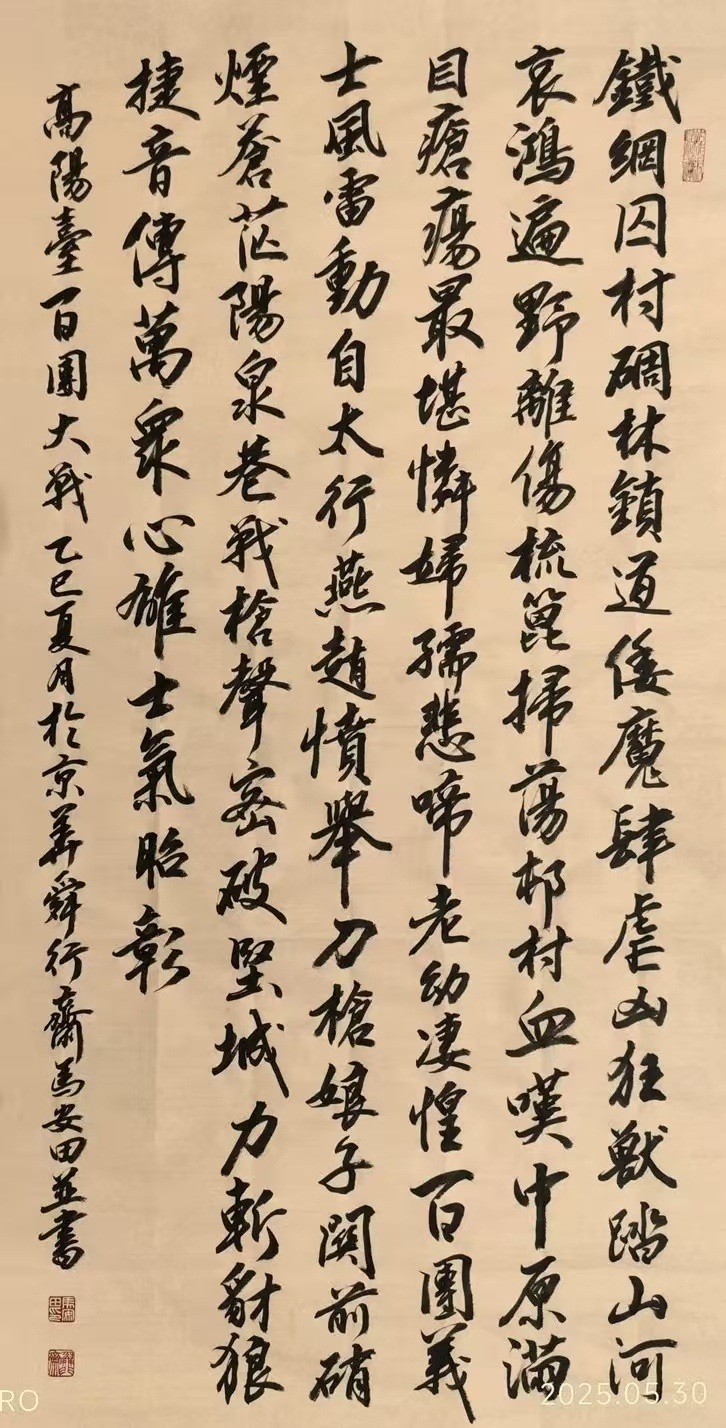 鐵網囚村碉林鎖道倭魔肆虐凶狂獸踏山河
哀鴻遍野離傷梳篦掃蕩邨村血嘆中原滿
目瘡瘍最堪憐婦孺悲啼老幼凄惶百團義
士風雷動自太行燕趙憤舉刀槍娘子關前硝
煙蒼茫陽泉巷戰槍聲密破堅城力斬豺狼
捷音傳萬眾心雄士氣昭彰
高陽臺百團大戰乙巳夏月於京華舜行齋馬安田並書
RO
2025.05.30